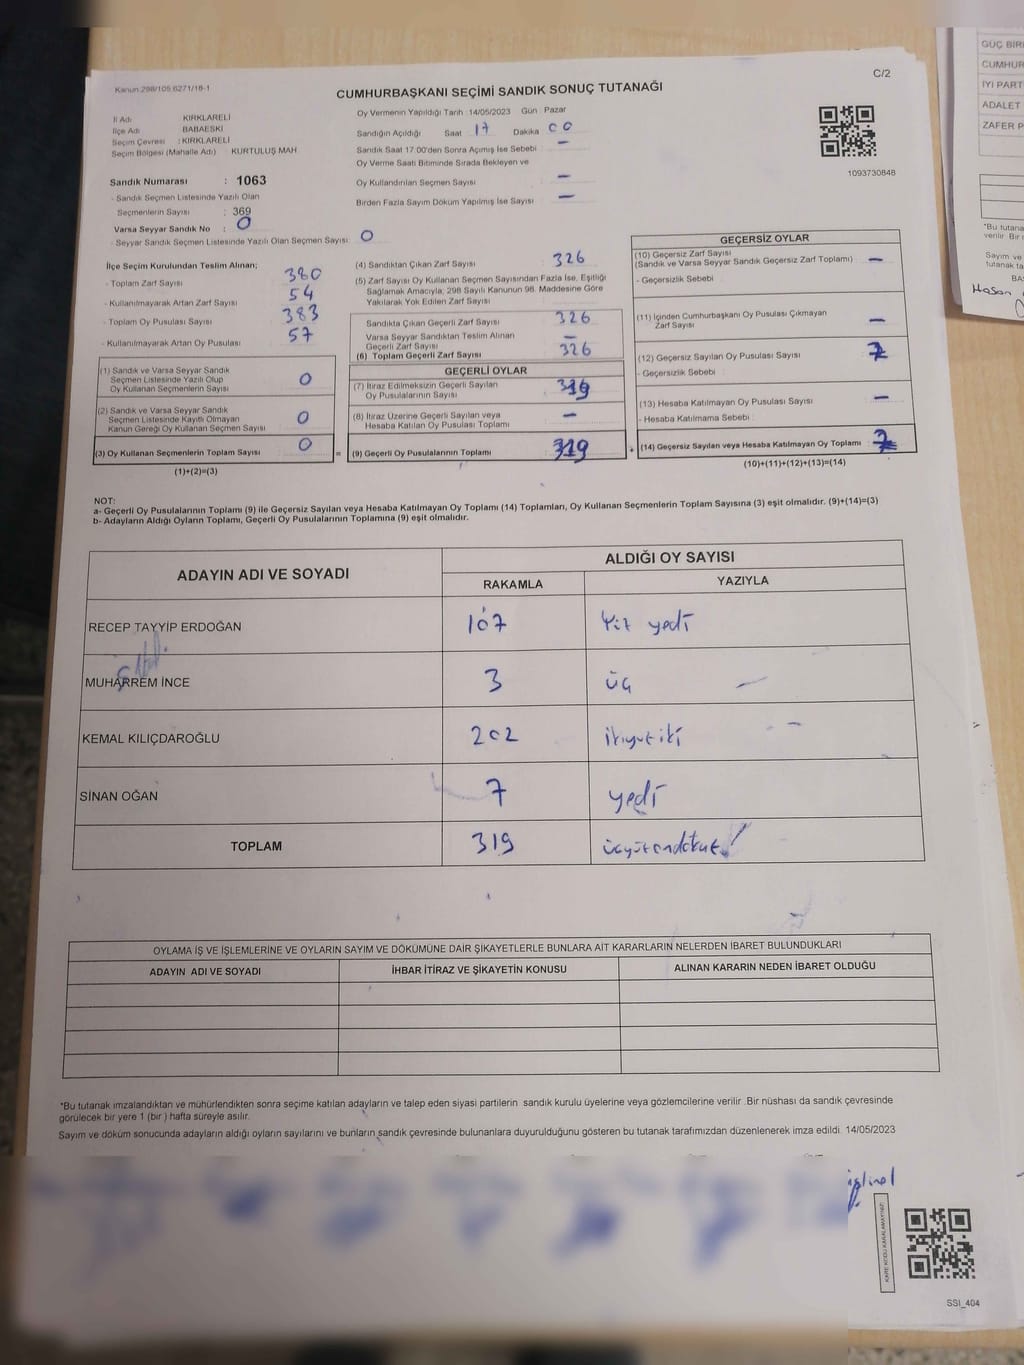 C/2
Kanun 298/105 6271/18-1
CUMHURBAŞKANI SEÇİMİ SANDIK SONUÇ TUTANAĞI
İl Adı KIRKLARELİ
İlçe Adı BABAESKİ
Seçim Çevresi : KIRKLARELİ
Seçim Bölgesi (Mahalle Adı) KURTULUŞ MAH
Sandık Numarası : 1063
- Sandık Seçmen Listesinde Yazılı Olan
Seçmenlerin Sayısı : 369
Varsa Seyyar Sandık No : 0
- Seyyar Sandık Seçmen Listesinde Yazılı Olan Seçmen Sayısı: 0
Oy Vermenin Yapıldığı Tarih 14/05/2023 Gün Pazar
Sandığın Açıldığı Saat 17 Dakika 00
Sandık Saat 17.00'den Sonra Açımış İse Sebebi : –
Oy Verme Saati Bitiminde Sırada Bekleyen ve
Oy Kullandırılan Seçmen Sayısı –
Birden Fazla Sayım Döküm Yapılmış İse Sayısı –
1093730848
İlçe Seçim Kurulundan Teslim Alınan;
- Toplam Zarf Sayısı : 380
- Kullanılmayarak Artan Zarf Sayısı : 54
- Toplam Oy Pusulası Sayısı : 383
- Kullanılmayarak Artan Oy Pusulası 57
(1) Sandık ve Varsa Seyyar Sandık
Seçmen Listesinde Yazılı Olup
Oy Kullanan Seçmenlerin Sayısı 0
(2) Sandık ve Varsa Seyyar Sandık
Seçmen Listesinde Kayıtlı Olmayan
Kanun Gereği Oy Kullanan Seçmen Sayısı 0
(3) Oy Kullanan Seçmenlerin Toplam Sayısı 0
(1)+(2)=(3)
(4) Sandıktan Çıkan Zarf Sayısı 326
(5) Zarf Sayısı Oy Kullanan Seçmen Sayısından Fazla İse, Eşitliği
Sağlamak Amacıyla, 298 Sayılı Kanunun 98. Maddesine Göre
Yakılarak Yok Edilen Zarf Sayısı
Sandıkta Çıkan Geçerli Zarf Sayısı 326
Varsa Seyyar Sandıktan Teslim Alınan
Geçerli Zarf Sayısı –
(6) Toplam Geçerli Zarf Sayısı 326
GEÇERLİ OYLAR
(7) İtiraz Edilmeksizin Geçerli Sayılan
Oy Pusulalarının Sayısı 319
(8) İtiraz Üzerine Geçerli Sayılan veya
Hesaba Katılan Oy Pusulası Toplamı –
= (9) Geçerli Oy Pusulalarının Toplamı 319
GEÇERSİZ OYLAR
(10) Geçersiz Zarf Sayısı
(Sandık ve Varsa Seyyar Sandık Geçersiz Zarf Toplamı) –
- Geçersizlik Sebebi
(11) İçinden Cumhurbaşkanı Oy Pusulası Çıkmayan
Zarf Sayısı –
(12) Geçersiz Sayılan Oy Pusulası Sayısı 7
- Geçersizlik Sebebi :
(13) Hesaba Katılmayan Oy Pusulası Sayısı –
- Hesaba Katılmama Sebebi :
+ (14) Geçersiz Sayılan veya Hesaba Katılmayan Oy Toplamı 7
(10)+(11)+(12)+(13)=(14)
NOT:
a- Geçerli Oy Pusulalarının Toplamı (9) ile Geçersiz Sayılan veya Hesaba Katılmayan Oy Toplamı (14) Toplamları, Oy Kullanan Seçmenlerin Toplam Sayısına (3) eşit olmalıdır. (9)+(14)=(3)
b- Adayların Aldığı Oyların Toplamı, Geçerli Oy Pusulalarının Toplamına (9) eşit olmalıdır.
ADAYIN ADI VE SOYADI ALDIĞI OY SAYISI
RAKAMLA YAZIYLA
RECEP TAYYİP ERDOĞAN 107 Yüz yedi
MUHARREM İNCE 3 üç
KEMAL KILIÇDAROĞLU 202 ikiyüziki
SİNAN OĞAN 7 yedi
TOPLAM 319 üçyüzondokuz
OYLAMA İŞ VE İŞLEMLERİNE VE OYLARIN SAYIM VE DÖKÜMÜNE DAİR ŞİKAYETLERLE BUNLARA AİT KARARLARIN NELERDEN İBARET BULUNDUKLARI
ADAYIN ADI VE SOYADI İHBAR İTİRAZ VE ŞİKAYETİN KONUSU ALINAN KARARIN NEDEN İBARET OLDUĞU
*Bu tutanak imzalandıktan ve mühürlendikten sonra seçime katılan adayların ve talep eden siyasi partilerin sandık kurulu üyelerine veya gözlemcilerine verilir. Bir nüshası da sandık çevresinde
görülecek bir yere 1 (bir) hafta süreyle asılır.
Sayım ve döküm sonucunda adayların aldığı oyların sayılarını ve bunların sandık çevresinde bulunanlara duyurulduğunu gösteren bu tutanak tarafımızdan düzenlenerek imza edildi. 14/05/2023
KARE KODU KARALAMAYINIZ!
SSI_404
GÜÇ BİR
CUMHUR
İYİ PART
ADALET
ZAFER P
*Bu tutana
verilir. Bir
Sayım ve
tutanak ta
Hasan